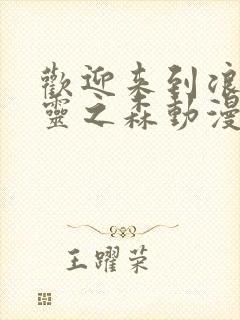 歡迎来到浪
靈之森動漫
王躍荣